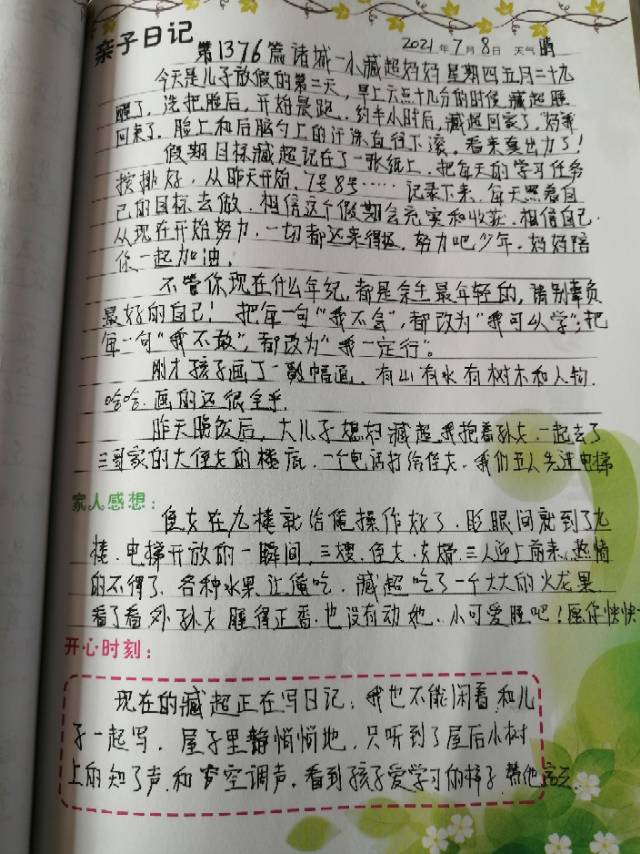 亲子日记
2021年7月8日 天气 晴
第1376篇 诸城一小臧超妈妈 星期四五月二十九
今天是儿子放假的第三天,早上六点十几分的时候臧超睡
醒了,洗把脸后,开始晨跑,约半小时后,臧超回家了,
回来了,脸上和后脑勺上的汗珠直往下滚,看来是出力了!
假期目标臧超记在了一张纸上,把每天的学习任务
按排好,从昨天开始,7号8号……记录下来,每天照着自
己的目标去做,相信这个假期会充实和收获,相信自己.
从现在开始努力,一切都还来得极,努力吧少年,妈妈陪
你一起加油!
不管你现在什么年纪,都是余生最年轻的,请别辜负
最好的自己!把每一句“我不会”,都改为“我可以学”;把
每一句“我不敢”,都改为“我一定行”。
刚才孩子画了一幅画,有山有水有树木和人物,
哈哈,画的还很全乎.
昨天晚饭后,大儿子媳妇臧超我抱着孙女,一起去了
三哥家的大侄女的楼底,一个电话打给侄女,我们五人先进电梯
家人感想:
侄女在九楼就给俺操作好了,眨眼间就到了九
楼,电梯开放的一瞬间,三嫂,侄女,女婿,三人迎上前来,热情
的不得了,各种水果让俺吃,臧超吃了一个大大的火龙果
看了看外孙女睡得正香,也没有动她,小可爱睡吧!愿你快快
开心时刻:
现在的臧超正在写日记;我也不能闲着,和儿
子一起写,屋子里静悄悄地,只听到了屋后小树
上的知了声,和空调声,看到孩子爱学习的样子,